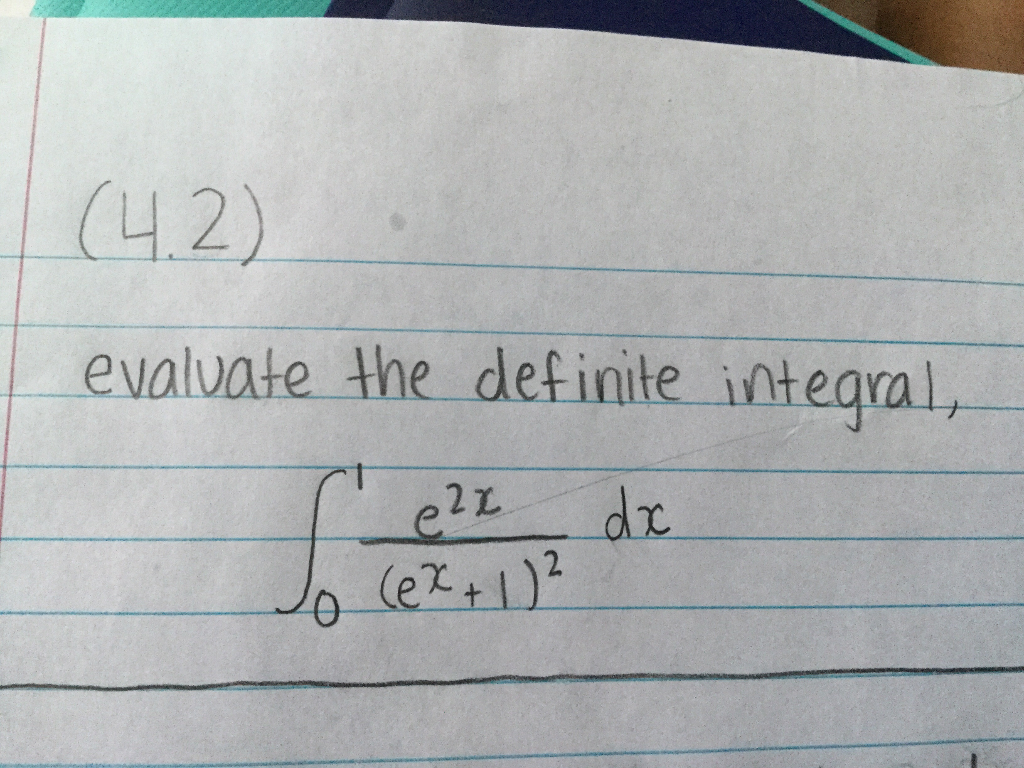 (4.2)
evaluate the definite integral,
∫₀¹ e^{2x} / (e^x + 1)² dx